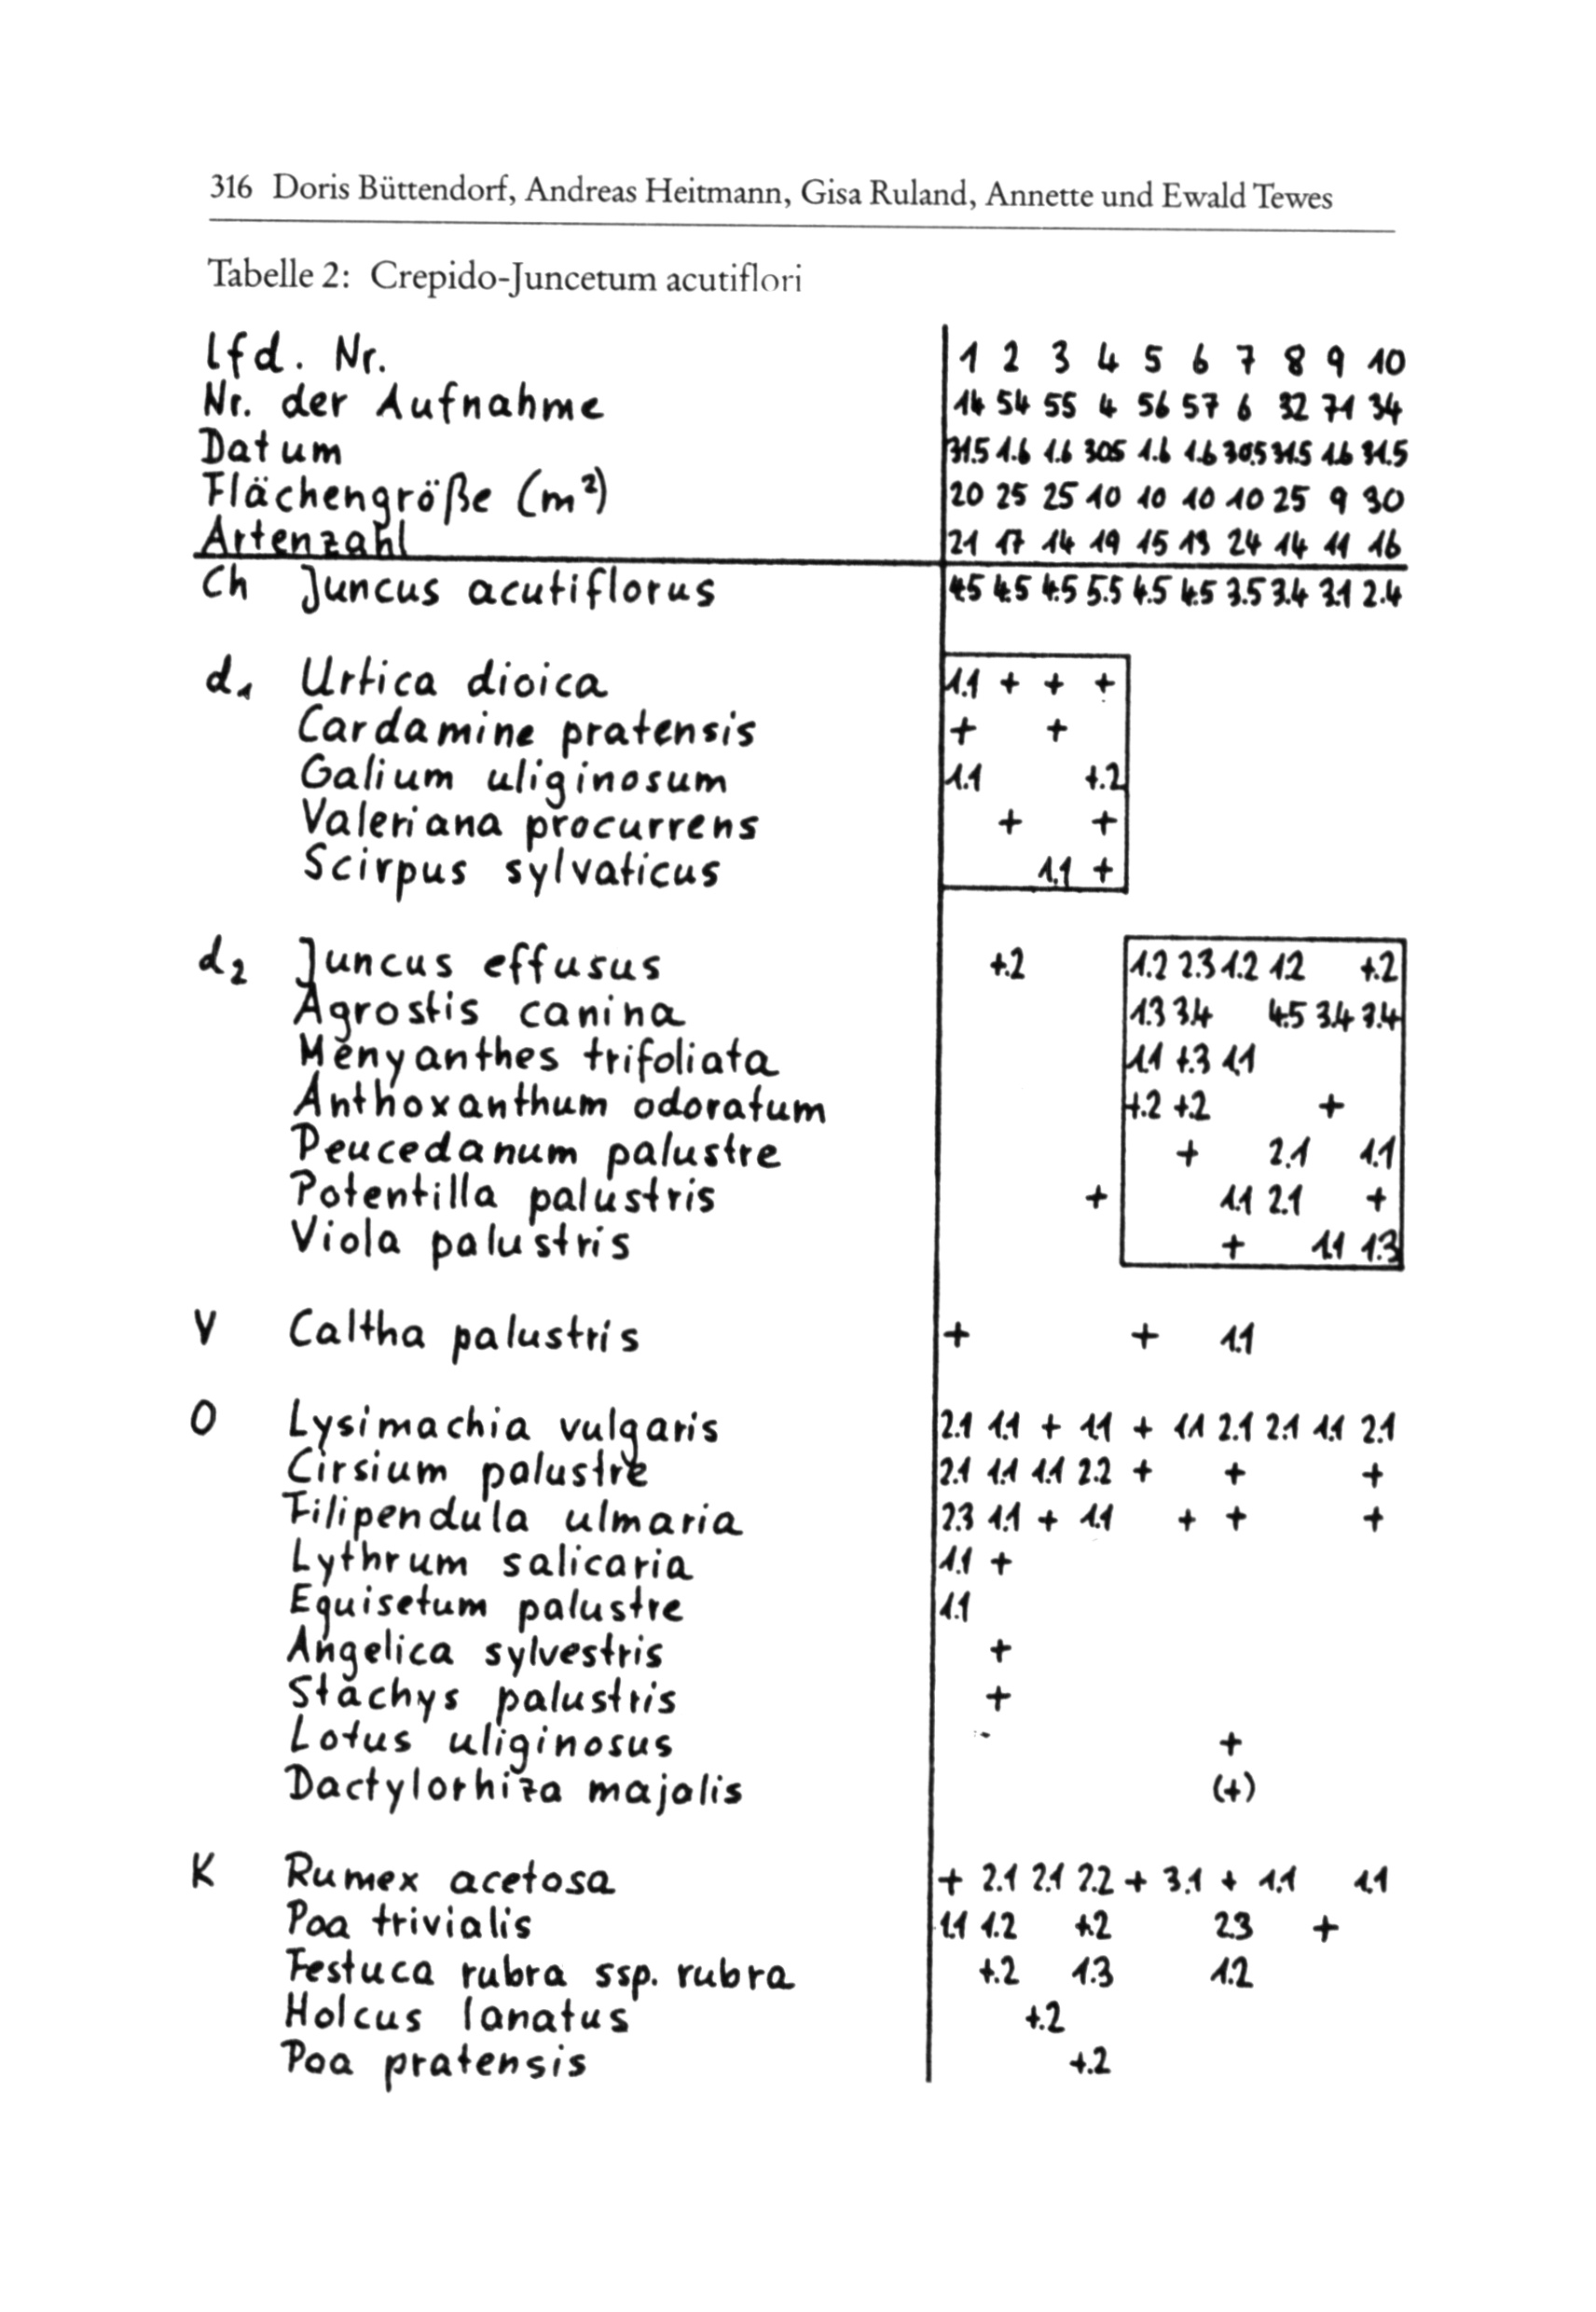 316 Doris Büttendorf, Andreas Heitmann, Gisa Ruland, Annette und Ewald Tewes
Tabelle 2: Crepido-Juncetum acutiflori
lfd. Nr. 1 2 3 4 5 6 7 8 9 10
Nr. der Aufnahme 14 54 55 4 56 57 6 32 71 34
Datum 31.5 1.6 1.6 30.5 1.6 1.6 30.5 31.5 1.6 31.5
Flächengröße (m²) 20 25 25 10 10 10 10 25 9 30
Artenzahl 21 17 14 19 15 13 24 14 11 16
Ch Juncus acutiflorus 4.5 4.5 4.5 5.5 4.5 4.5 3.5 3.4 3.1 2.4
d1 Urtica dioica 1.1 + + +
Cardamine pratensis + +
Galium uliginosum 1.1 +.2
Valeriana procurrens + +
Scirpus sylvaticus 1.1 +
d2 Juncus effusus +.2 1.2 2.3 1.2 1.2 +.2
Agrostis canina 1.3 3.4 4.5 3.4 3.4
Menyanthes trifoliata 1.1 +.3 1.1
Anthoxanthum odoratum +.2 +.2 +
Peucedanum palustre + 2.1 1.1
Potentilla palustris + 1.1 2.1 +
Viola palustris + 1.1 1.3
V Caltha palustris + + 1.1
O Lysimachia vulgaris 2.1 1.1 + 1.1 + 1.1 2.1 2.1 1.1 2.1
Cirsium palustre 2.1 1.1 1.1 2.2 + + +
Filipendula ulmaria 2.3 1.1 + 1.1 + + +
Lythrum salicaria 1.1 +
Equisetum palustre 1.1
Angelica sylvestris +
Stachys palustris +
Lotus uliginosus +
Dactylorhiza majalis (+)
K Rumex acetosa + 2.1 2.1 2.2 + 3.1 + 1.1 1.1
Poa trivialis 1.1 1.2 +.2 2.3 +
Festuca rubra ssp. rubra +.2 1.3 1.2
Holcus lanatus +.2
Poa pratensis +.2